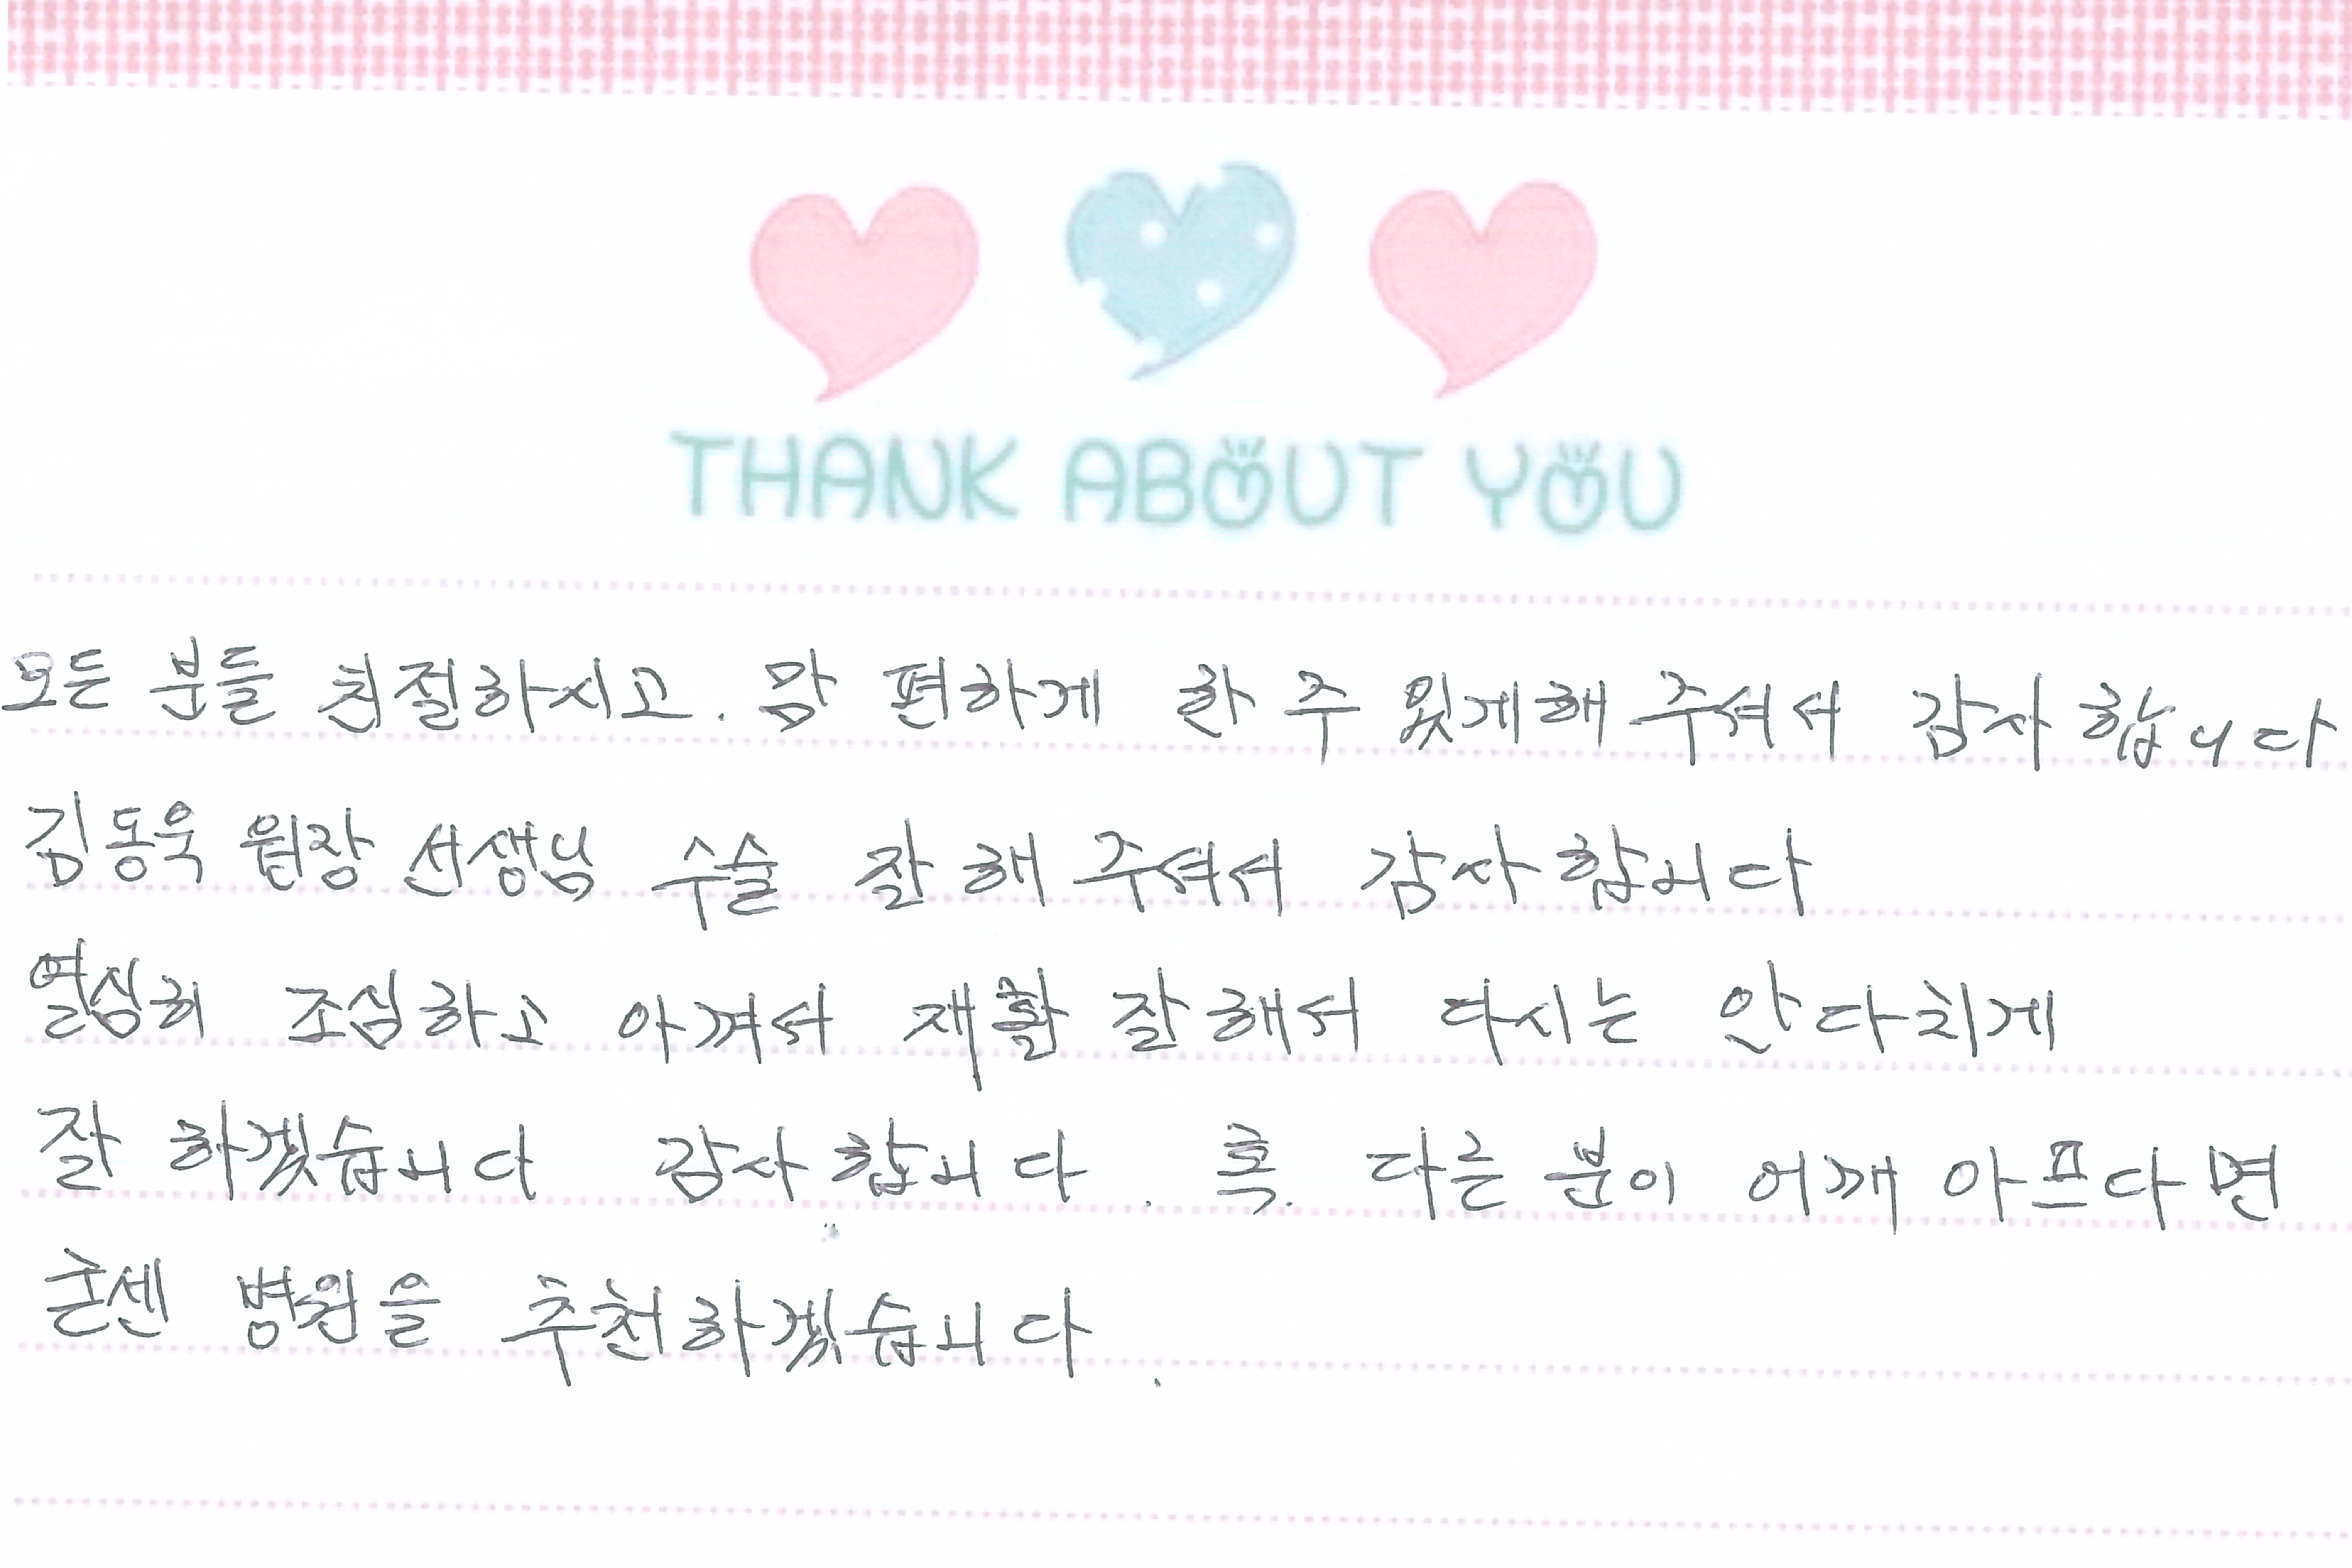 THANK ABOUT YOU
모든 분들 친절하시고. 맘 편하게 한 주 있게해 주셔서 감사합니다
김동욱 원장 선생님 수술 잘 해 주셔서 감사합니다
열심히 조심하고 아껴서 재활 잘 해서 다시는 안다치게
잘 하겠습니다 감사합니다. 혹. 다른 분이 어깨 아프다면
굳센 병원을 추천하겠습니다.